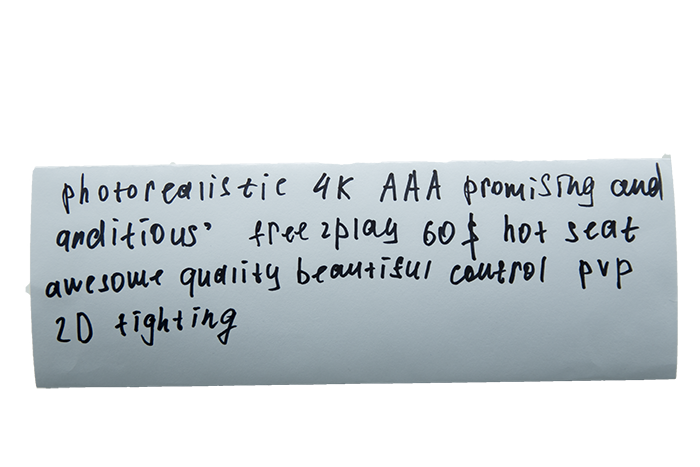 photorealistic 4K AAA promising and
anditious' free2play 60$ hot seat
awesome quality beautiful control pvp
2D fighting